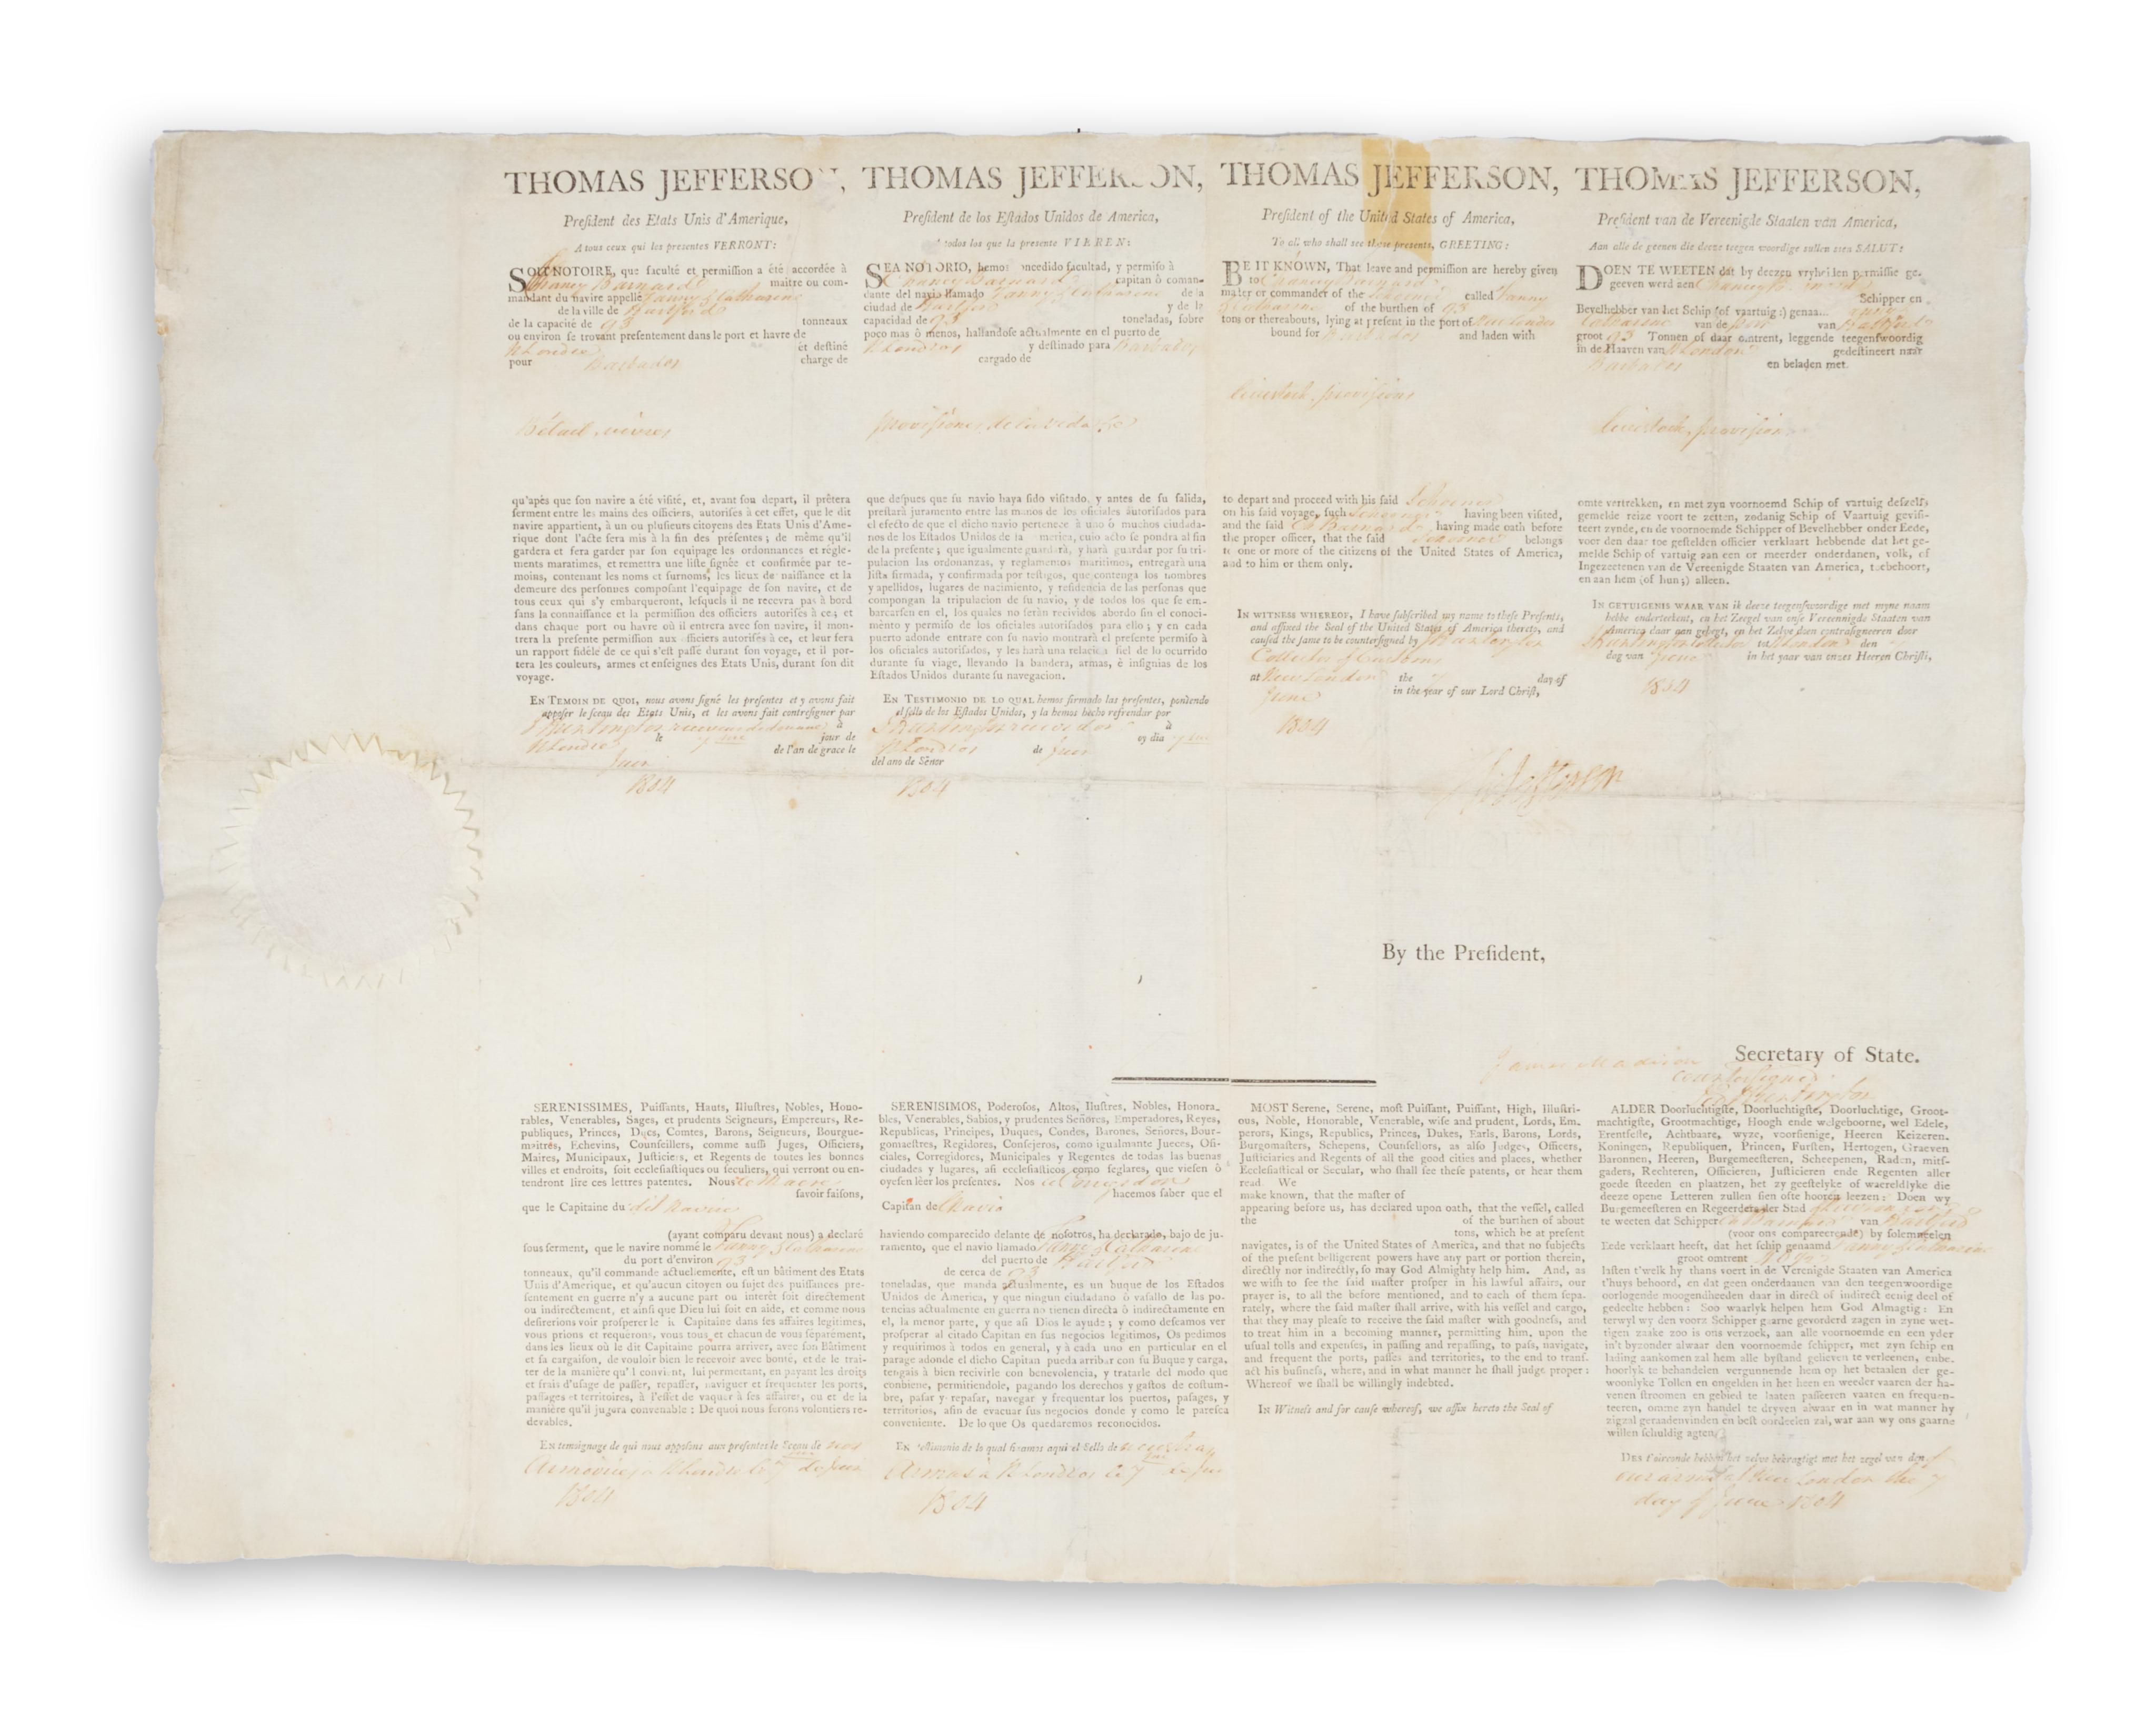 THOMAS JEFFERSO ,
Preſident des Etats Unis d'Amerique,
A tous ceux qui les preſentes VERRONT:
SOIT NOTOIRE, que faculté et permiſſion a été accordée à
Chancy Barnard maitre ou com-
mandant du navire appellé Fanny & Catharine
de la ville de Hartford
de la capacité de 93 tonneaux
ou environ ſe trouvant preſentement dans le port et havre de
N London et deſtiné
pour Barbados charge de
Bétail vivres
qu'apès que ſon navire a été viſité, et, avant ſou depart, il prêtera
ſerment entre les mains des officiers, autoriſes à cet effet, que le dit
navire appartient, à un ou pluſieurs citoyens des Etats Unis d'Ame-
rique dont l'acte ſera mis à la fin des préſentes; de même qu'il
gardera et fera garder par ſon equipage les ordonnances et regle-
ments maratimes, et remettra une liſte ſignée et confirmée par te-
moins, contenant les noms et ſurnoms, les lieux de naiſſance et la
demeure des perſonnes compoſant l'equipage de ſon navire, et de
tous ceux qui s'y embarqueront, leſquels il ne recevra pas à bord
ſans la connaiſſance et la permiſſion des officiers autoriſés à ce; et
dans chaque port ou havre où il entrera avec ſon navire, il mon-
trera la preſente permiſſion aux officiers autoriſés à ce, et leur fera
un rapport fidèle de ce qui s'eſt paſſé durant ſon voyage, et il por-
tera les couleurs, armes et enſeignes des Etats Unis, durant ſon dit
voyage.
EN TEMOIN DE QUOI, nous avons ſigné les preſentes et y avons fait
appoſer le ſceau des Etats Unis, et les avons fait contreſigner par
J Huntington à
N London le jour de
Juin de l'an de grace le
1804
THOMAS JEFFER ON,
Preſident de los Eſtados Unidos de America,
todos los que la preſente VIEREN:
SEA NOTORIO, hemos concedido facultad, y permiſo à
Chancy Barnard capitan ò coman-
dante del navio llamado Fanny & Catharine de la
ciudad de Hartford y de la
capacidad de 93 toneladas, ſobre
poco mas ò menos, hallandoſe actualmente en el puerto de
N London y deſtinado para Barbados
cargado de
proviſiones
que deſpues que ſu navio haya ſido viſitado, y antes de ſu ſalida,
preſtarà juramento entre las manos de los oficiales autoriſados para
el efecto de que el dicho navio pertenece à uno ò muchos ciudada-
nos de los Eſtados Unidos de la merica, cuio acto ſe pondra al fin
de la preſente; que igualmente guardarà, y harà guardar por ſu tri-
pulacion las ordonanzas, y reglamentos maritimos, entregarà una
liſta firmada, y confirmada por teſtigos, que contenga los nombres
y apellidos, lugares de nacimiento, y reſidencia de las perſonas que
compongan la tripulacion de ſu navio, y de todos los que ſe em-
barcarſen en el, los quales no ſeràn recividos abordo ſin el conoci-
mento y permiſo de los oficiales autoriſados para ello; y en cada
puerto adonde entrare con ſu navio montrarà el preſente permiſo à
los oficiales autoriſados, y les harà una relacion fiel de lo ocurrido
durante ſu viage, llevando la bandera, armas, è inſignias de los
Eſtados Unidos durante ſu navegacion.
EN TESTIMONIO DE LO QUAL hemos firmado las preſentes, poniendo
el ſello de los Eſtados Unidos, y la hemos hecho refrendar por
J Huntington à
N London oy dia
de Juin
del ano de Sènor
1804
THOMAS JEFFERSON,
Preſident of the United States of America,
To all who ſhall ſee theſe preſents, GREETING:
BE IT KNOWN, That leave and permiſſion are hereby given
to Chancy Barnard
maſter or commander of the Schooner called Fanny
& Catharine of the burthen of 93
tons or thereabouts, lying at preſent in the port of New London
bound for Barbados and laden with
livestock, proviſions
to depart and proceed with his ſaid Schooner
on his ſaid voyage, ſuch Schooner having been viſited,
and the ſaid C Barnard having made oath before
the proper officer, that the ſaid Schooner belongs
to one or more of the citizens of the United States of America,
and to him or them only.
IN WITNESS WHEREOF, I have ſubſcribed my name to theſe Preſents,
and affixed the Seal of the United States of America thereto, and
cauſed the ſame to be counterſigned by J Huntington
Collector of Customs
at New London the 7 day of
June in the year of our Lord Chriſt,
1804
Th: Jefferson
THOMAS JEFFERSON,
Preſident van de Vereenigde Staaten van America,
Aan alle de geenen die deeze teegen woordige zullen zien SALUT:
DOEN TE WEETEN dat by deezen vryheiden permiſſie ge-
geeven werd aen Chancy Barnard
Schipper en
Bevelhebber van het Schip (of vaartuig:) genaa... Fanny
Catharine van de Port van Hartford
groot 93 Tonnen of daar omtrent, leggende teegenſwoordig
in de Haaven van N London gedeſtineert naar
Barbados en beladen met.
livestock, proviſions
omte vertrekken, en met zyn voornoemd Schip of vartuig deſzelfs
gemelde reize voort te zetten, zodanig Schip of Vaartuig geviſi-
teert zynde, en de voornoemde Schipper of Bevelhebber onder Eede,
voor den daar toe geſtelden officier verklaart hebbende dat het ge-
melde Schip of vartuig aan een or meerder onderdanen, volk, of
Ingezeetenen van de Vereenigde Staaten van America, toebehoort,
en aan hem (of hun;) alleen.
IN GETUIGENIS WAAR VAN ik deeze teegenſwoordige met myne naam
hebbe onderteekent, en het Zeegel van onſe Vereenigde Staaten van
America daar aan gehegt, en het Zelve doen contraſigneeren door
J Huntington tot N London den
dag van June in het jaar van onzes Heeren Chriſti,
1804
By the Preſident,
James Madison Secretary of State.
Countersigned
J Huntington
SERENISSIMES, Puiſſants, Hauts, Illuſtres, Nobles, Hono-
rables, Venerables, Sages, et prudents Seigneurs, Empereurs, Re-
publiques, Princes, Ducs, Comtes, Barons, Seigneurs, Bourgue-
maitres, Echevins, Counſeillers, comme auſſi Juges, Officiers,
Maires, Municipaux, Juſticiers, et Regents de toutes les bonnes
villes et endroits, ſoit eccleſiaſtiques ou ſeculiers, qui verront ou en-
tendront lire ces lettres patentes. Nous le Maire
ſavoir faiſons,
que le Capitaine du dit Navire
(ayant comparu devant nous) a declaré
ſous ſerment, que le navire nommé le Fanny & Catharine
du port d'environ 93
tonneaux, qu'il commande actuellemente, eſt un bâtiment des Etats
Unis d'Amerique, et qu'aucun citoyen ou ſujet des puiſſances pre-
ſentement en guerre n'y a aucune part ou interêt ſoit directement
ou indirectement, et ainſi que Dieu lui ſoit en aide, et comme nous
deſirerions voir proſperer le Capitaine dans ſes affaires legitimes,
vous prions et requerons, vous tous et chacun de vous ſeparément,
dans les lieux où le dit Capitaine pourra arriver, avec ſon Bâtiment
et ſa cargaiſon, de vouloir bien le recevoir avec bonté, et de le trai-
ter de la manière qu'l convient, lui permettant, en payant les droits
et frais d'uſage de paſſer, repaſſer, naviguer et frequenter les ports,
paſſages et territoires, à l'effet de vaquer à ſes affaires, ou et de la
manière qu'il jugera convenable: De quoi nous ſerons volontiers re-
devables.
EN temoignage de qui nous appoſons aux preſentes le Sceau de nos
Armoiries à N London le 7 de Juin
1804
SERENISIMOS, Poderoſos, Altos, Iluſtres, Nobles, Honora-
bles, Venerables, Sabios, y prudentes Señores, Emperadores, Reyes,
Republicas, Principes, Duques, Condes, Barones, Señores, Bour-
gomaeſtres, Regidores, Conſejeros, como igualmante Jueces, Ofi-
ciales, Corregidores, Municipales y Regentes de todas las buenas
ciudades y lugares, aſi eccleſiaſticos como ſeglares, que vieſen ò
oyeſen lèer los preſentes. Nos
hacemos ſaber que el
Capitan de
haviendo comparecido delante de noſotros, ha declarado, bajo de ju-
ramento, que el navio llamado Fanny & Catharine
del puerto de Hartford
de cerca de 93
toneladas, que manda actualmente, es un buque de los Eſtados
Unidos de America, y que ningun ciudadano ò vaſallo de las po-
tencias actualmente en guerra no tienen directa ò indirectamente en
el, la menor parte, y que aſi Dios le ayude; y como deſeamos ver
proſperar al citado Capitan en ſus negocios legitimos, Os pedimos
y requirimos à todos en general, y à cada uno en particular en el
parage adonde el dicho Capitan pueda arribar con ſu Buque y carga,
tengais à bien recivirle con benevolencia, y tratarle del modo que
conbiene, permitiendole, pagando los derechos y gaſtos de coſtum-
bre, paſar y repaſar, navegar y frequentar los puertos, paſages, y
territorios, afin de evacuar ſus negocios donde y como le pareſca
conveniente. De lo que Os quedaremos reconocidos.
EN teſtimonio de lo qual firmamos aqui el Sello de
Armas à N London le 7 de Juin
1804
MOST Serene, Serene, moſt Puiſſant, Puiſſant, High, Illuſtri-
ous, Noble, Honorable, Venerable, wiſe and prudent, Lords, Em-
perors, Kings, Republics, Princes, Dukes, Earls, Barons, Lords,
Burgomaſters, Schepens, Counſellors, as alſo Judges, Officers,
Juſticiaries and Regents of all the good cities and places, whether
Eccleſiaſtical or Secular, who ſhall ſee theſe patents, or hear them
read. We
make known, that the maſter of
appearing before us, has declared upon oath, that the veſſel, called
the of the burthen of about
tons, which he at preſent
navigates, is of the United States of America, and that no ſubjects
of the preſent belligerent powers have any part or portion therein,
directly nor indirectly, ſo may God Almighty help him. And, as
we wiſh to ſee the ſaid maſter proſper in his lawful affairs, our
prayer is, to all the before mentioned, and to each of them ſepa-
rately, where the ſaid maſter ſhall arrive, with his veſſel and cargo,
that they may pleaſe to receive the ſaid maſter with goodneſs, and
to treat him in a becoming manner, permitting him, upon the
uſual tolls and expenſes, in paſſing and repaſſing, to paſs, navigate,
and frequent the ports, paſſes and territories, to the end to tranſ-
act his buſineſs, where, and in what manner he ſhall judge proper:
Whereof we ſhall be willingly indebted.
IN Witneſs and for cauſe whereof, we affix hereto the Seal of
ALDER Doorluchtigſte, Doorluchtigſte, Doorluchtige, Groot-
machtigſte, Grootmachtige, Hoogh ende welgeboorne, wel Edele,
Erentfeſte, Achtbaare, wyze, voorſienige, Heeren Keizeren.
Koningen, Republiquen, Princen, Furſten, Hertogen, Graeven
Baronnen, Heeren, Burgemeeſteren, Scheepenen, Raden, mitſ-
gaders, Rechteren, Officieren, Juſticieren ende Regenten aller
goede ſteeden en plaatzen, het zy geeſtelyke of waereldlyke die
deeze opene Letteren zullen ſien ofte hooren leezen: Doen wy
Burgemeeſteren en Regeerders der Stad New London
te weeten dat Schipper C Barnard van Hartford
(voor ons compareerende) by ſolemneelen
Eede verklaart heeft, dat het ſchip genaamd Fanny & Catharine
groot omtrent
laſten t'welk hy thans voert in de Verenigde Staaten van America
t'huys behoord, en dat geen onderdaanen van den teegenwoordige
oorlogende moogendheeden daar in direct of indirect eenig deel of
gedeelte hebben: Soo waarlyk helpen hem God Almagtig: En
terwyl wy den voorz Schipper gaarne gevorderd zagen in zyne wet-
tigen zaake zoo is ons verzoek, aan alle voornoemde en een yder
in't byzonder alwaar den voornoemde ſchipper, met zyn ſchip en
lading aankomen zal hem alle byſtand gelieven te verleenen, enbe-
hoorlyk te behandelen vergunnende hem op het betaalen der ge-
woonlyke Tollen en ongelden in het heen en weeder vaaren der ha-
venen ſtroomen en gebied te laaten paſſeeren vaaren en frequen-
teeren, omme zyn handel te dryven alwaar en in wat manner hy
zigzal geraadenvinden en beſt oordeelen zal, war aan wy ons gaarne
willen ſchuldig agten.
DES t'oirconde hebben het zelve bekragtigt met het zegel van den
our arms at New London the 7
day of June 1804